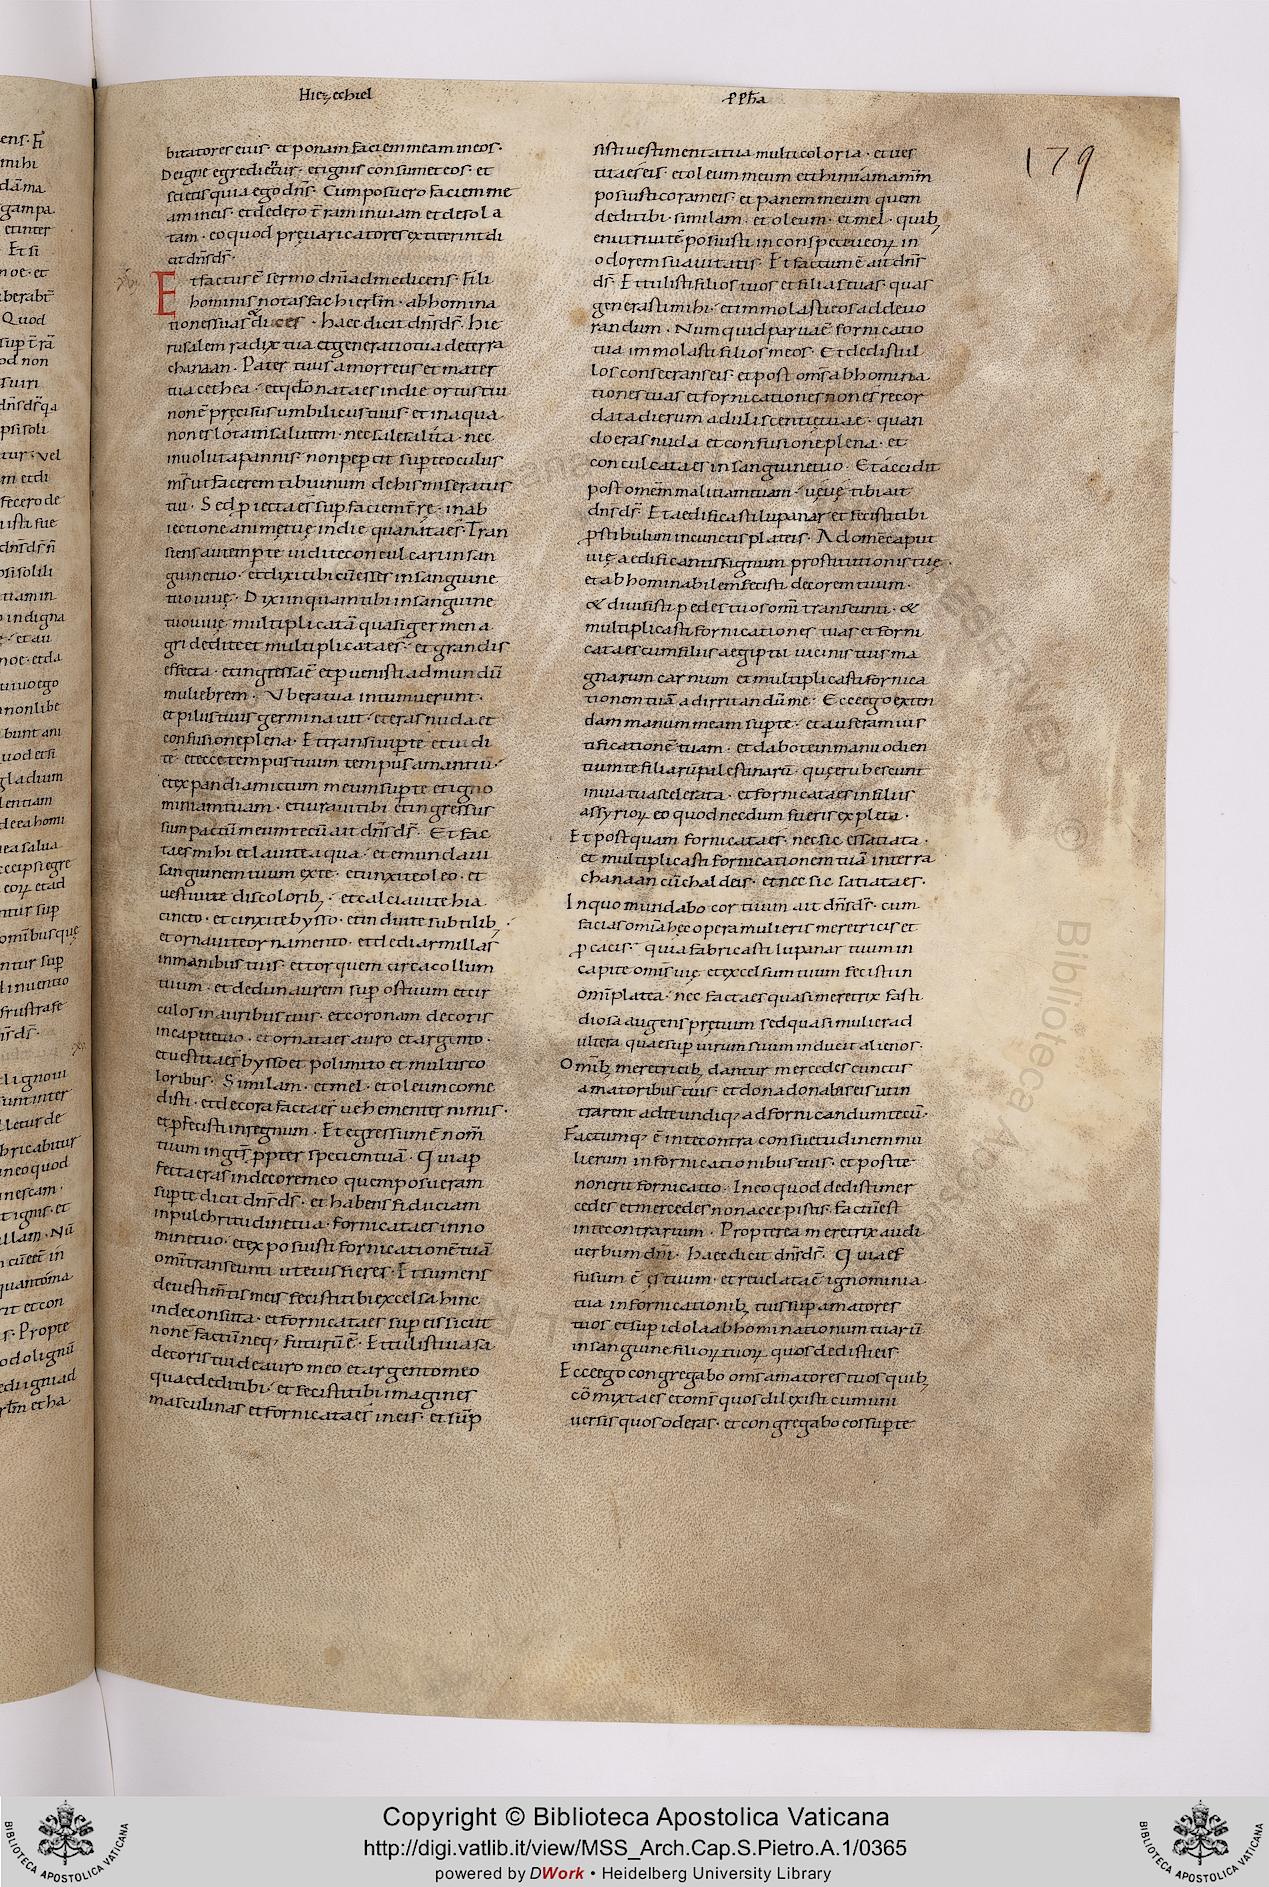 Hiezechiel
p̄pħa
179
bitatores eius · et ponam faciem meam in eos ·
De igne egredietur · et ignis consumet eos · et
scietis quia ego dn̄s · Cum posuero faciem me
am in eis · et dedero t̄ram inuiam et desola
tam · eo quod pręuaricatores extiterint di
cit dn̄s ds̄ ·
Et factus ē sermo dn̄i ad me dicens · Fili
hominis notas fac hierłm · abhomina
tiones suas · haec dicit dn̄s ds̄ · Hie
rusalem radix tua et generatio tua de terra
chanaan · Pater tuus amorreus et mater
tua cethea · et qdo nata es in die ortus tui
non ē pręcisus umbilicus tuus · et in aqua
non es lota in salutem · nec sale salita · nec
inuoluta pannis · non pepcit sup te oculus
ms̄ ut facerem tibi unum de his miseratus
tui · Sed piecta es sup faciem t̄rę · in ab
iectione animę tuę in die qua nata es · Tran
siens autem p te uidi te conculcari in san
guine tuo · et dixi tibi cū esses in sanguine
tuo uiue · Dixi inquam tibi in sanguine
tuo uiue · multiplicatā quasi germen a
gri dedi te et multiplicata es · et grandis
effecta · et ingressa ē et puenisti ad mundū
muliebrem · Vbera tua intumuerunt ·
et pilus tuus germinauit · et eras nuda et
confusione plena · Et transiui p te et uidi
te · et ecce tempus tuum tempus amantiū ·
et expandi amictum meum sup te et igno
miniam tuam · et iuraui tibi et ingressus
sum pactū meum tecū ait dn̄s ds̄ · Et fac
ta es mihi et laui te aqua · et emundaui
sanguinem tuum ex te · et unxi te oleo · et
uestiui te discolorib; · et calciaui te hia
cincto · et cinxi te bysso · et indui te subtilib;
et ornaui te ornamento · et dedi armillas
in manibus tuis · et torquem circa collum
tuum · et dedi inaurem sup os tuum et cir
culos in auribus tuis · et coronam decoris
in capite tuo · et ornata es auro et argento ·
et uestita es bysso et polimito et multis co
loribus · Similam · et mel · et oleum come
disti · et decora facta es uehementer nimis ·
et pfecisti in regnum · Et egressum ē nom̄
tuum in gt̄s ppter speciem tuā · Quia p
fecta eras in decore meo quem posueram
sup te dicit dn̄s ds̄ · et habens fiduciam
in pulchritudine tua · fornicata es in no
mine tuo · et exposuisti fornicationē tuā
om̄i transeunti ut eius fieres · Et sumens
de uestim̄tis meis fecisti tibi excelsa hinc
inde consuta · et fornicata es sup eis sicut
non ē factū neq; futurū ē · Et tulisti uasa
decoris tui de auro meo et argento meo
quae dedi tibi · et fecisti tibi imagines
masculinas et fornicata es in eis · et sūp
sisti uestimenta tua multicoloria · et ues
tita es eis · et oleum meum et thimiama m̄m
posuisti coram eis · et panem meum quem
dedi tibi · similam · et oleum · et mel · quib;
enutriui tē posuisti in conspectu eoꝝ in
odorem suauitatis · Et factum ē ait dn̄s
ds̄ · Et tulisti filios tuos et filias tuas · quas
generasti mihi · et immolasti eos ad deuo
randum · Numquid parua ē fornicatio
tua immolasti filios meos · Et dedisti il
los consecrans eis · et post om̄s abhomina
tiones tuas et fornicationes non es recor
data dierum adulescentię tuae · quan
do eras nuda et confusione plena · et
conculcata es in sanguine tuo · Et accidit
post omem̄ malitiam tuam · uę uę tibi ait
dn̄s ds̄ · Et aedificasti lupanar et fecisti tibi
pstibulum in cunctis plateis · Ad omē caput
uię aedificasti signum prostitutionis tuę ·
et abhominabilem fecisti decorem tuum ·
& diuisisti pedes tuos om̄i transeunti · &
multiplicasti fornicationes tuas et forni
cata es cum filiis aegipti uicinis tuis ma
gnarum carnium et multiplicasti fornica
tionem tuā ad irritandū me · Ecce ego exten
dam manum meam sup te · et auferam ius
tificationē tuam · et dabo te in manu odien
tium te filiarū palestinarū · quę erubescunt
in uia tua scelerata · et fornicata es in filiis
assyrioꝝ eo quod necdum fueris expleta ·
Et postquam fornicata es · nec sic es satiata ·
et multiplicasti fornicationem tuā in terra
chanaan cū chaldeis · et nec sic satiata es ·
In quo mundabo cor tuum ait dn̄s ds̄ · cum
facias om̄ia hęc opera mulieris meretricis et
pcacis · quia fabricasti lupanar tuum in
capite om̄is uię · et excelsum tuum fecisti in
om̄i platea · nec facta es quasi meretrix fasti
diosa augens pretium sed quasi mulier ad
ultera quae sup uirum suum inducit alienos ·
Omīb; meretricib; dantur mercedes cunctis
amatoribus tuis · et dona donabas eis ut in
trarent ad te undiq; ad fornicandum tecū ·
Factumq; ē in te contra consuetudinem mu
lierum in fornicationibus tuis · et post te
non erit fornicatio · In eo quod dedisti mer
cedes et mercedes non accepistis · factū est
in te contrarium · Propterea meretrix audi
uerbum dn̄i · Haec dicit dn̄s ds̄ · Quia ef
fusum ē ęs tuum · et reuelata ē ignominia
tua in fornicationib; tuis sup amatores
tuos et sup idola abhominationum tuarū
in sanguine filioꝝ tuoꝝ quos dedisti eis ·
Ecce ego congregabo om̄s amatores tuos quib;
cōmixta es et om̄s quos dilexisti cum uni
uersis quos oderas · et congregabo eos sup te
Copyright © Biblioteca Apostolica Vaticana
http://digi.vatlib.it/view/MSS_Arch.Cap.S.Pietro.A.1/0365
powered by DWork • Heidelberg University Library
BIBLIOTECA APOSTOLICA VATICANA
BIBLIOTECA APOSTOLICA VATICANA